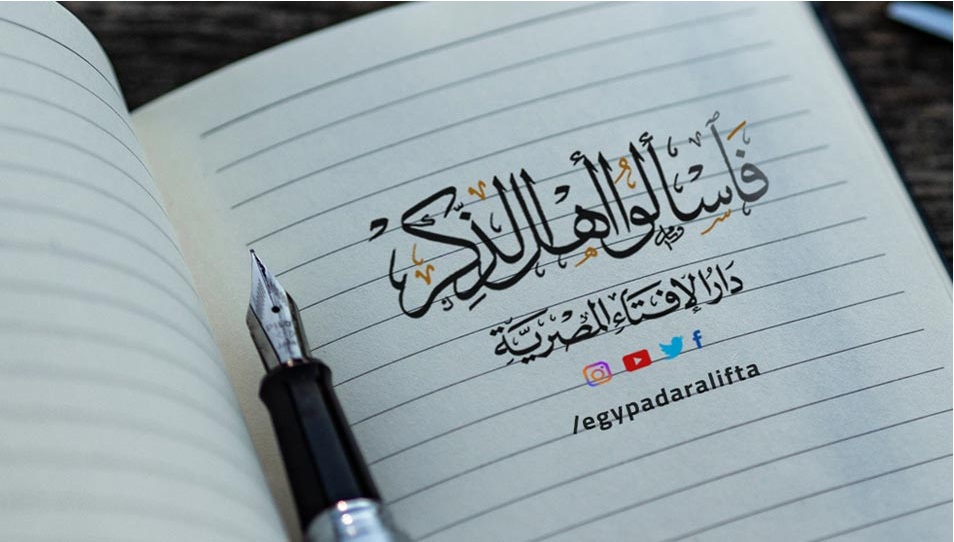 فَاسْأَلُوا أَهْلَ الذِّكْرِ
دَارُ الإِفْتَاءِ المِصْرِيَّة
/egypadaralifta